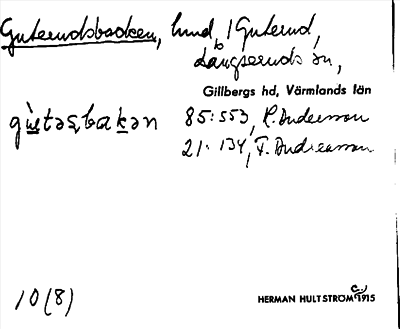 Guterudsbacken, lund, i Guterud,
Långseruds sn,
Gillbergs hd, Värmlands län
85:553, K. Andersson
21:134, F. Andreasson
10(8)
HERMAN HULTSTRÖM 1915